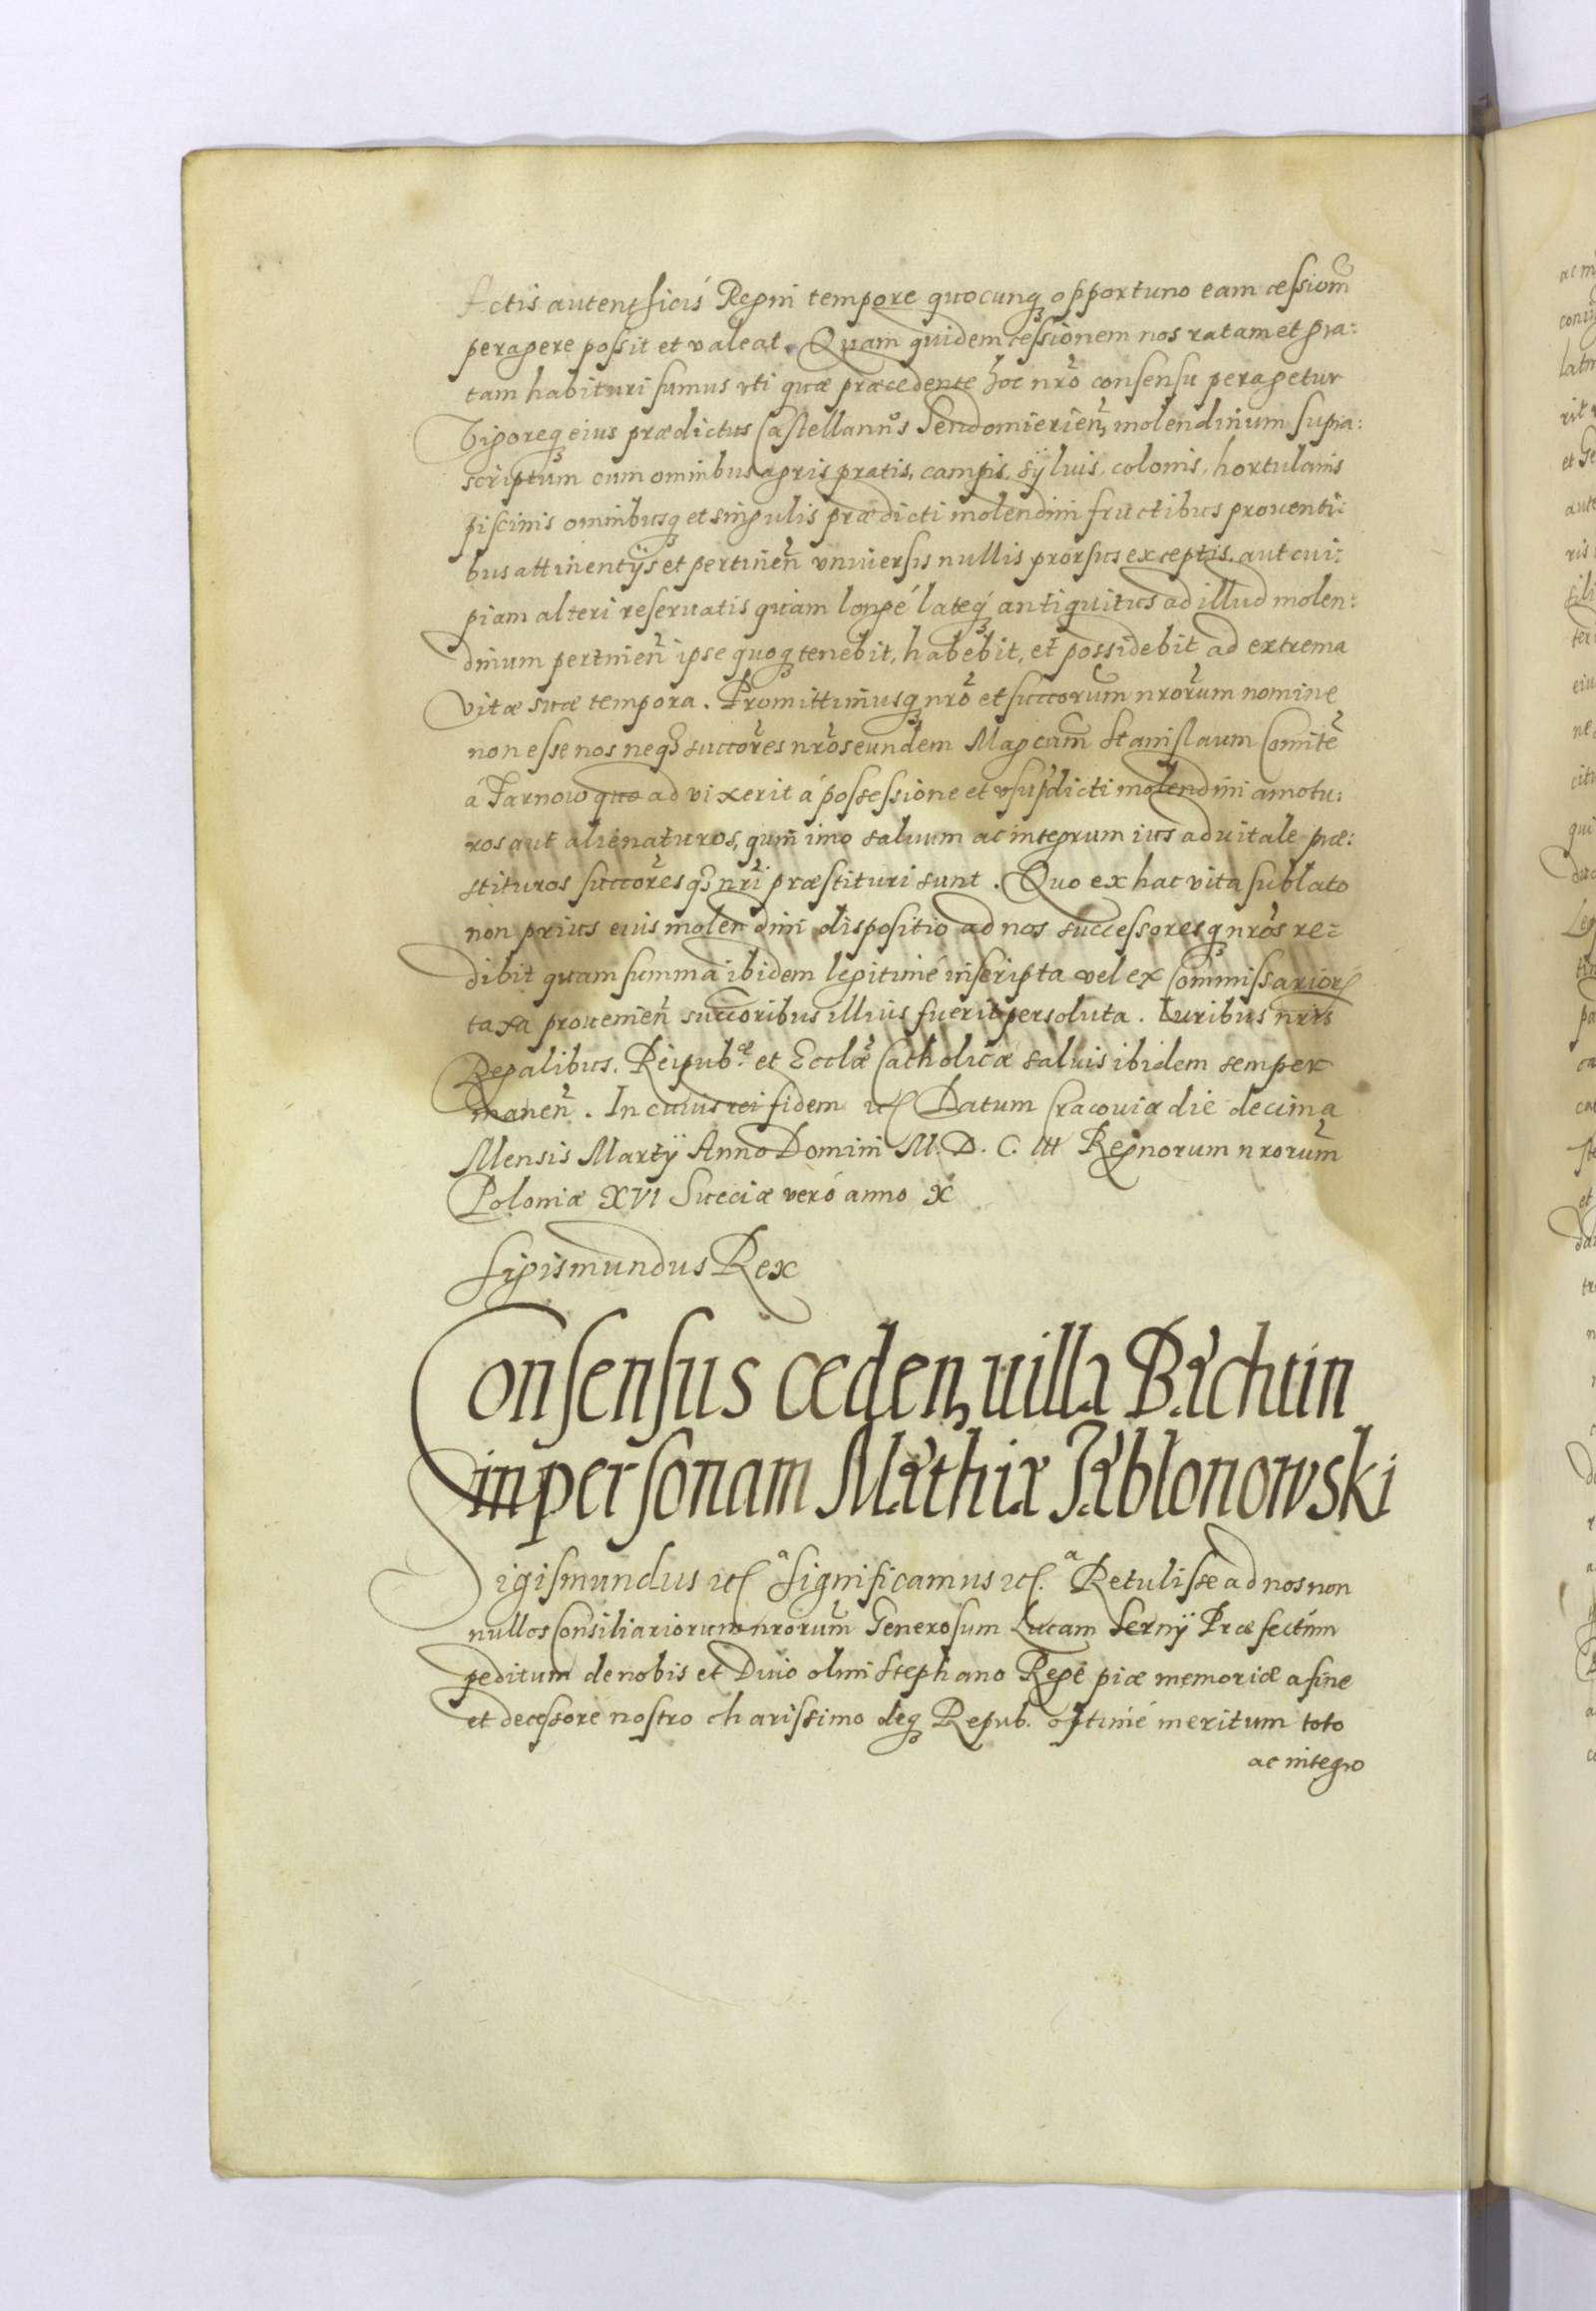 Actis autenthicis Regni tempore quocunq opportuno eam cessiom̃
peragere possit et valeat. Quam quidem cessionem nos ratam et gra:
tam habituri sumus vti quæ præcedente hoc nr̃o consensu peragetur
Vigoreq eius prædictus Castellannus Sendomirien̄, molendinum supra:
scriptum cum omnibus agris pratis, campis, sÿluis, colonis, hortulanis
piscinis omnibusq et singulis prædicti molendini fructibus prouenti:
bus attinentÿs et pertinen̄ vniuersis nullis prorsus exceptis, aut cui:
piam alteri reseruatis quàm longé lateq antiquitus ad illud molen:
dinum pertinen̄ ipse quoq tenebit, habebit, et possidebit ad extrema
vitæ suæ tempora. Promittimusq nr̃o et succorum̃ nrorum̃ nomine
non esse nos neq succores̃ nr̃os eundem Magcum̃ Stanislaum Comitẽ
á Tarnow quo ad vixerit á possessione et vsu p̃dicti molendini amotu:
ros aut alienaturos, quin̄ imo saluum ac integrum ius aduitale præ:
stituros succores̃q nr̃i præstituri sunt. Quo ex hac vita sublato
non prius eius molendini dispositio ad nos successoresq nr̃os re:
dibit quam summa ibidem legitimé inscripta vel ex Commissarior
taxa prouenien̄ succoribus illius fuerit persoluta. Iuribus nris
Regalibus. Reipub.æ et Ecclæ̃ Catholicæ saluis ibidem semper
manen̄. In cuius rei fidem etc Datum Cracouiæ die decima
Mensis Martÿ Anno Domini M. D. C. III Regnorum nrorum̃
Poloniæ XVI Sueciæ veró anno X
Sigismundus Rex
Consensus ceden, villa Bachtin
in personam Mathiæ Jablonowski
Sigismundus etc a Significamus etc. a Retulisse ad nos non
nullos Consiliariorum nrorum̃ Generosum Lucam Sernÿ Præfectum
peditum de nobis et Diuo olim Stephano Rege piæ memoriæ afine
et decessore nostro charissimo deq Repub. optimé meritum toto
ac integro